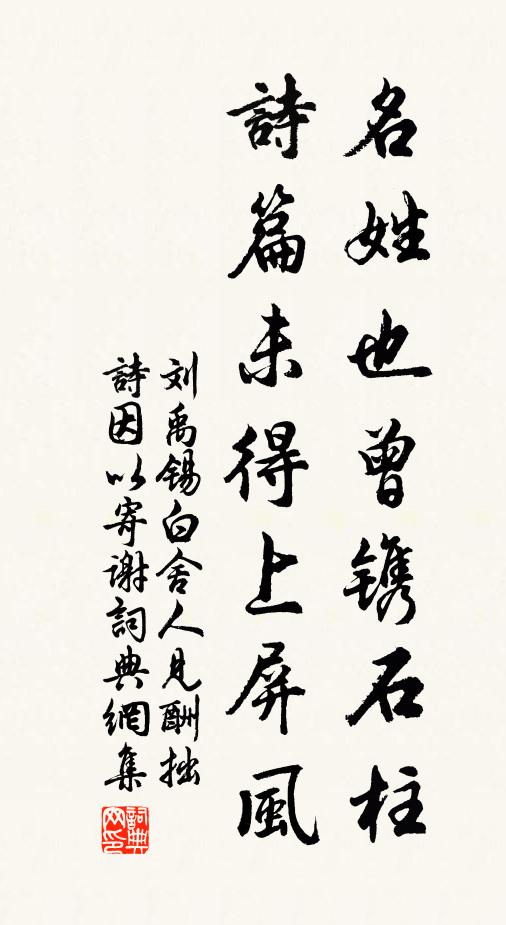 名姓也曾镌石柱
詩篇未得上屏風
刘禹锡白舍人見酬拙
詩因以寄谢詞典網集
詞典網印